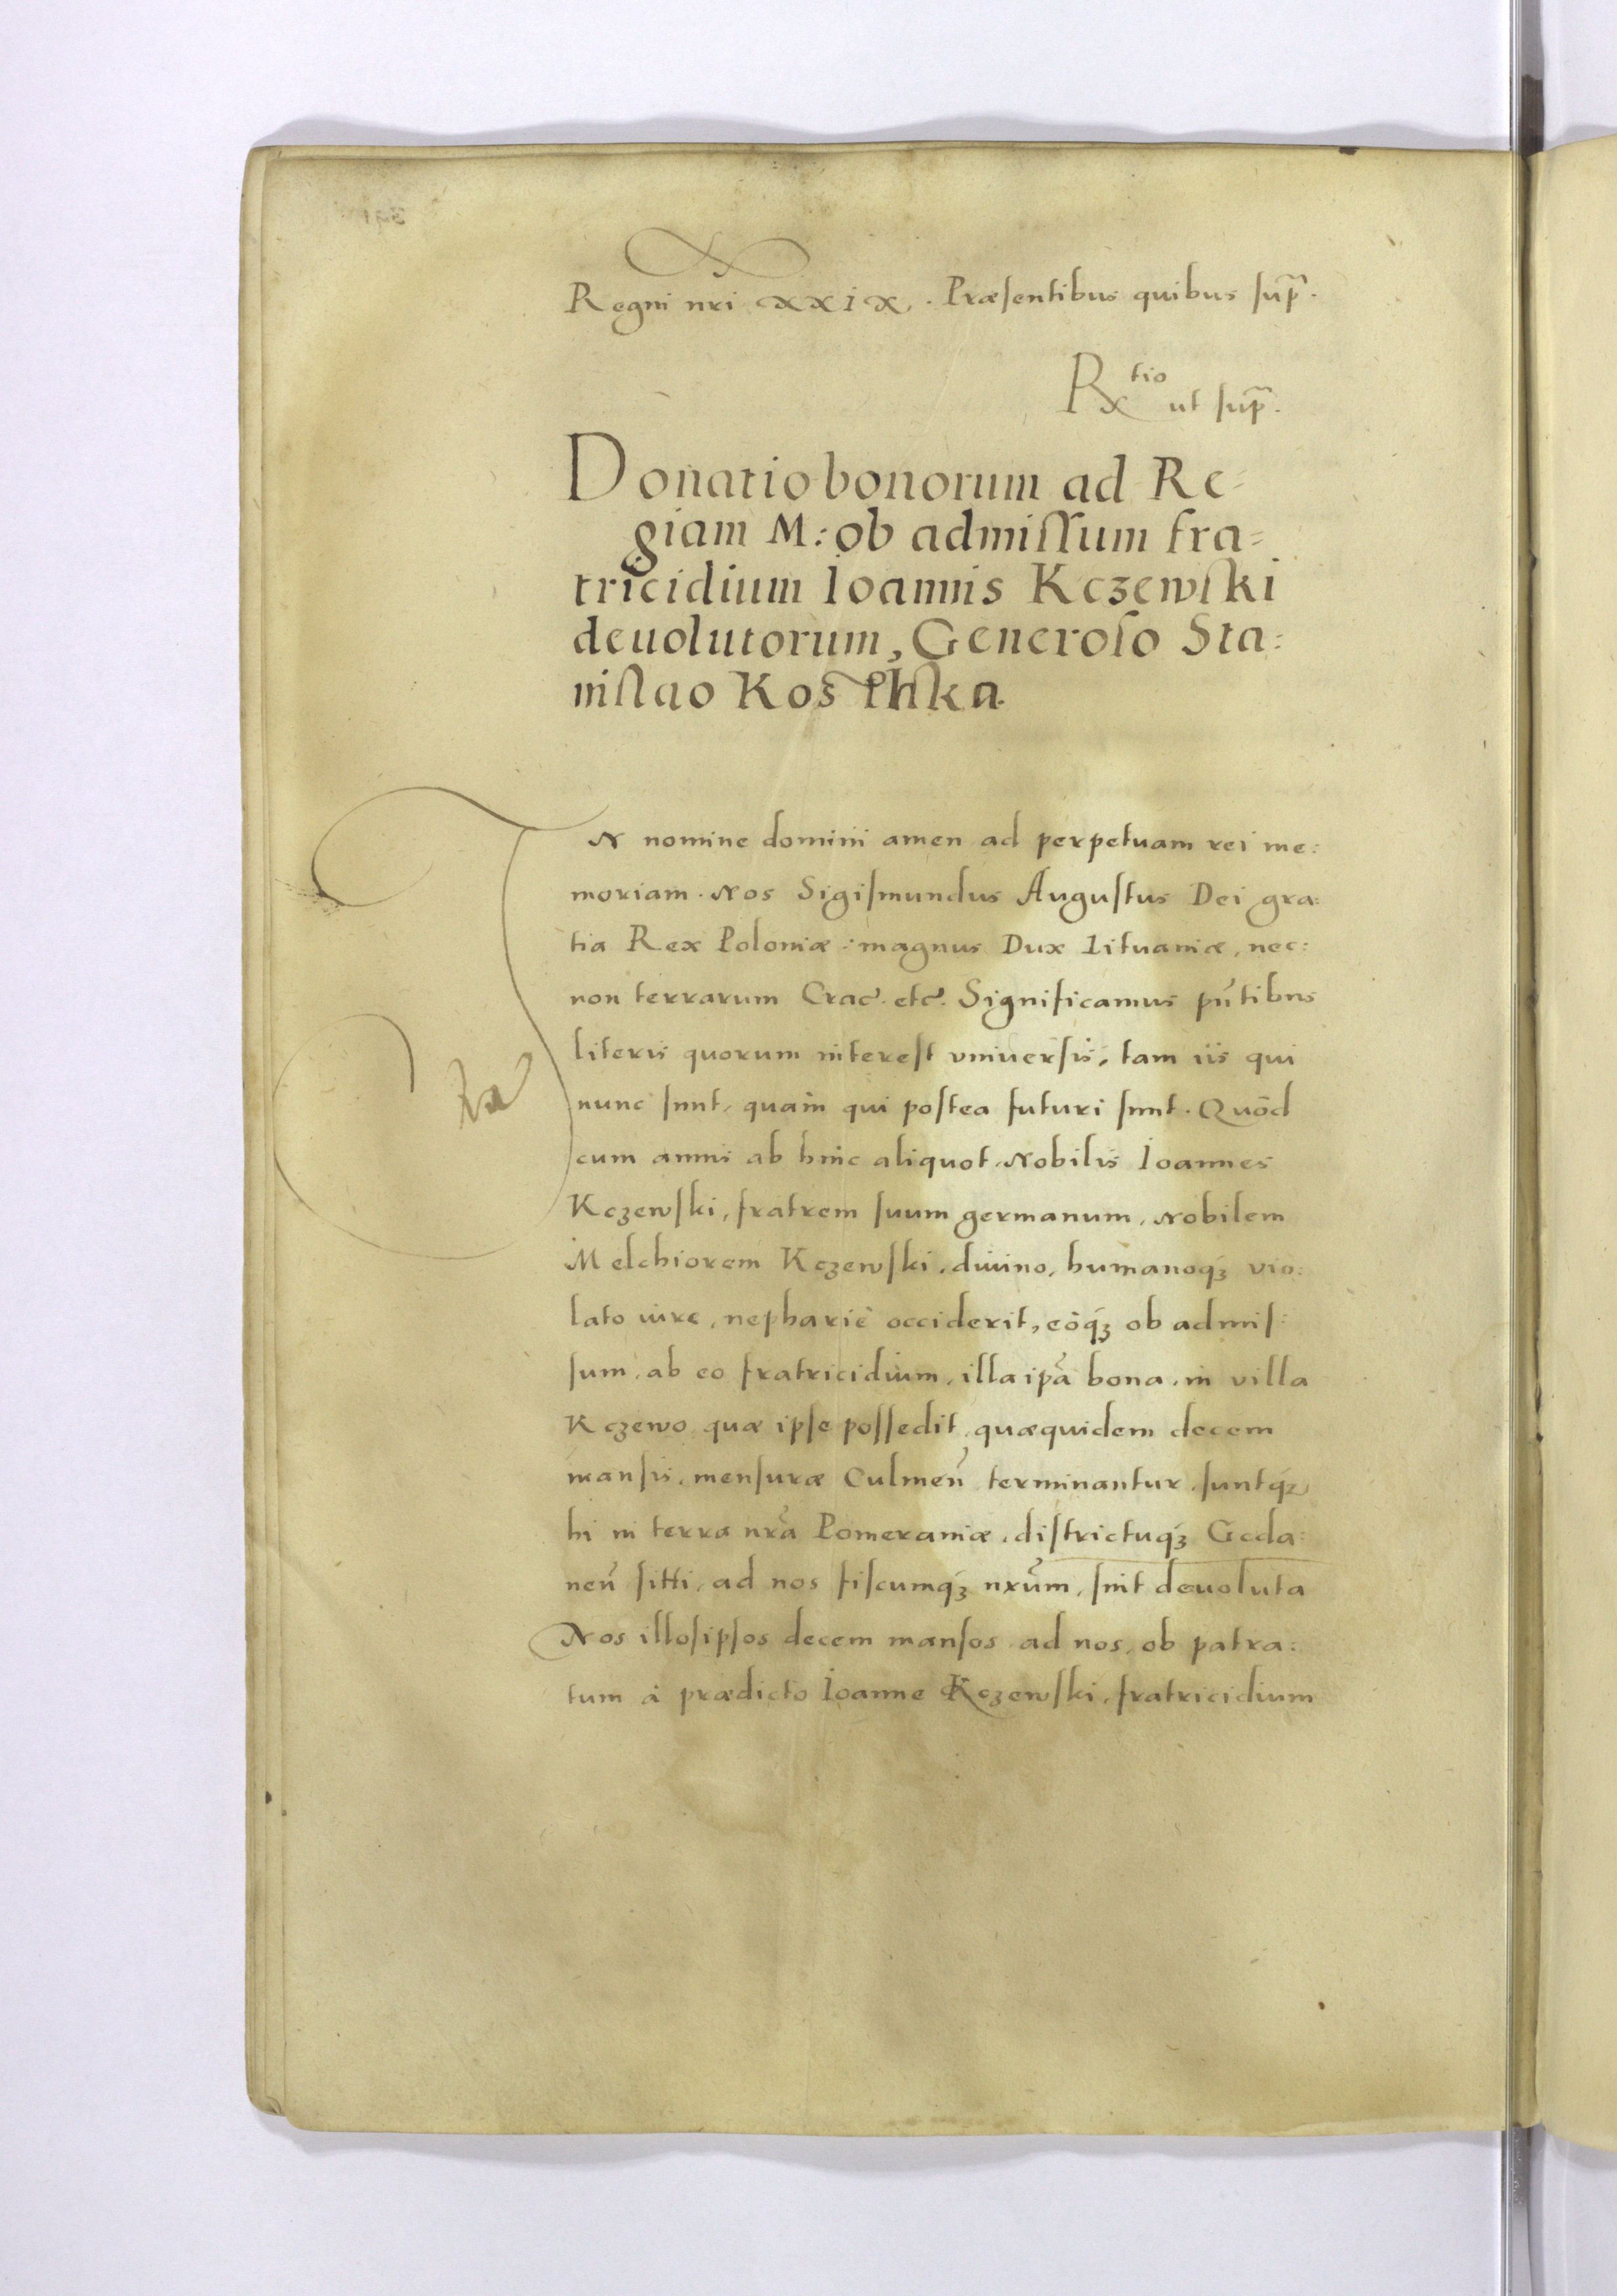 Regni nri xxix. Præsentibus quibus sup̃.
Rtio ut sup̃.
Donatio bonorum ad Re-
giam M: ob admissum fra=
tricidium Ioannis Kczewski
deuolutorum, Generoso Sta=
nislao Kosthka.
IN nomine domini amen ad perpetuam rei me:
moriam. Nos Sigismundus Augustus Dei gra:
tia Rex Poloniæ: magnus Dux Lituaniæ, nec:
non terrarum Crac̃. etc̃. Significamus pñtibus
literis quorum interest vniuersis, tam iis qui
nunc sunt, quàm qui postea futuri sunt. Quòd
cum annis ab hinc aliquot, Nobilis Ioannes
Kczewski, fratrem suum germanum, Nobilem
Melchiorem Kczewski, diuino, humanoqꝫ vio:
lato iure, nephariè occiderit, eòqꝫ ob admis:
sum, ab eo fratricidium, illa ipã bona, in villa
Kczewo quæ ipse possedit, quæquidem decem
mansis, mensuræ Culmeñ terminantur, suntqꝫ
hi in terra nrã Pomeraniæ, districtuqꝫ Geda:
neñ sitti, ad nos fiscumqꝫ nrũm, sint deuoluta
Nos illos ipsos decem mansos ad nos, ob patra:
tum à prædicto Ioanne Kczewski, fratricidium